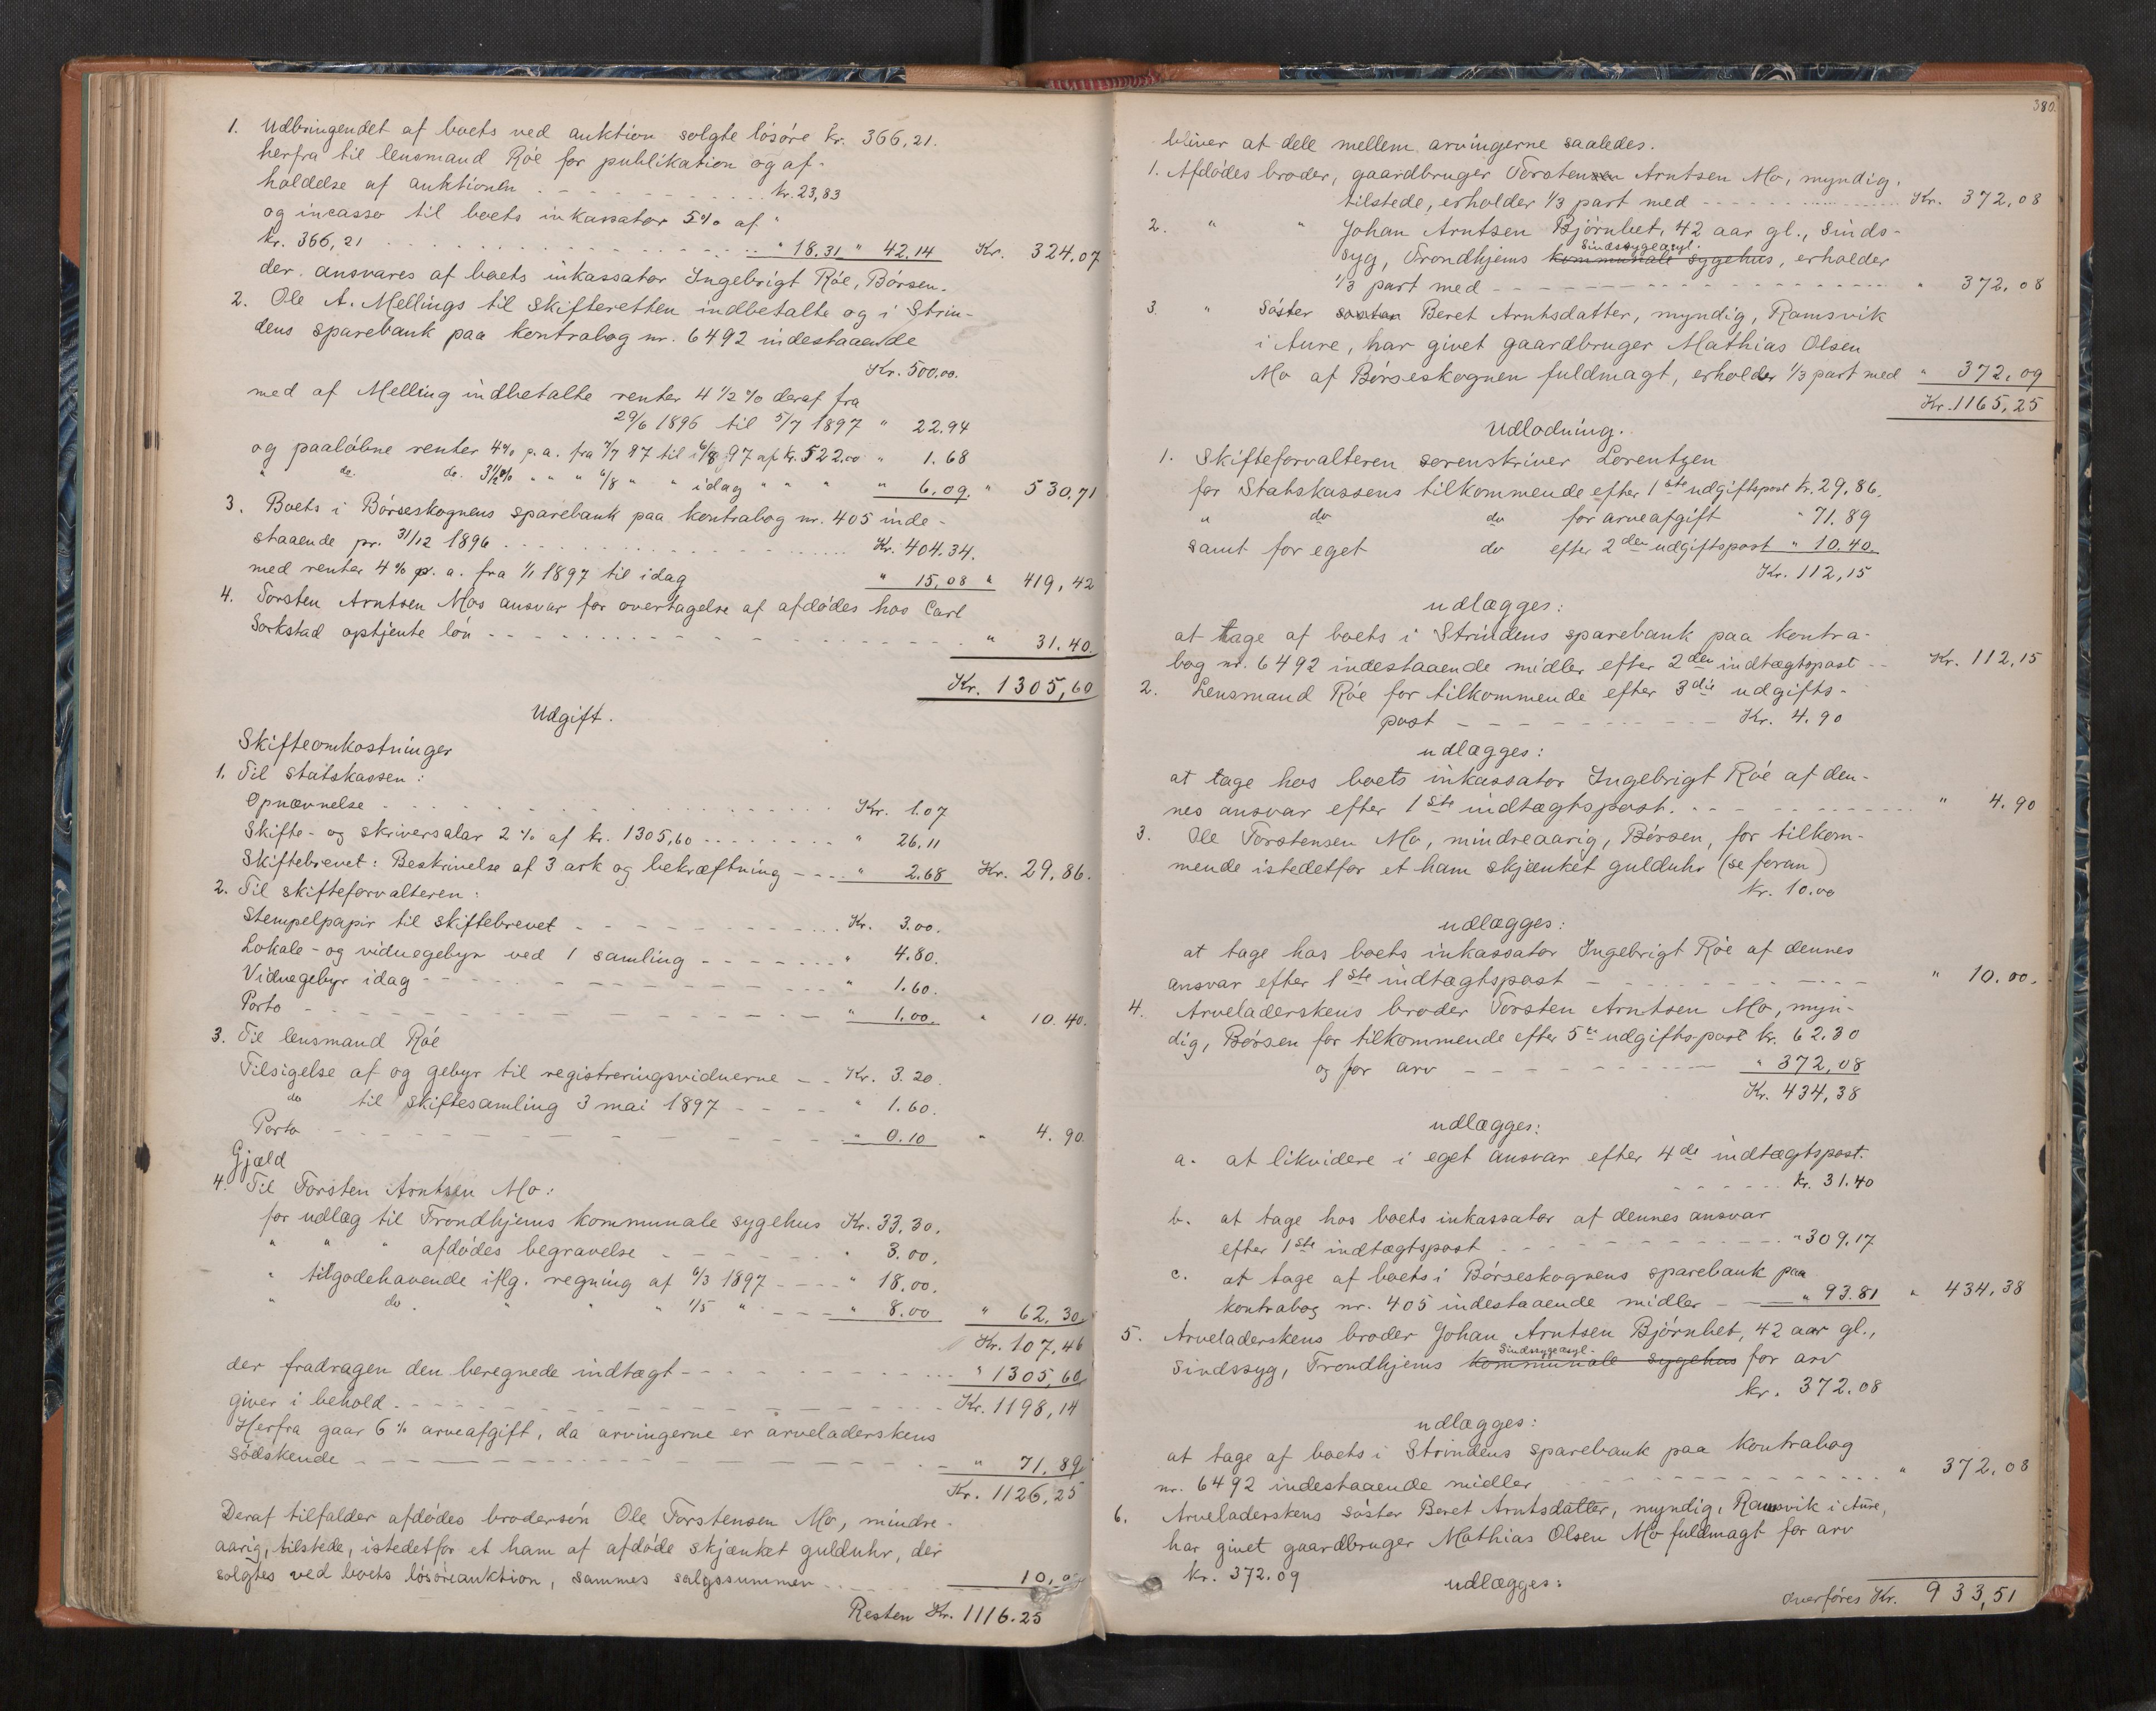 1. Udbringendet af boets ved auktion solgte lösöre kr. 366,21.
herfra til lensmand Röe for publikation og af-
holdelse af auktionen . . . . . kr. 23,83
og incasso til boets inkassator 5% af "
kr. 366,21 . . . . . " 18.31 " 42.14 Kr. 324.07
der ansvares af boets inkassator Ingebrigt Röe, Börsen.
2. Ole A. Mellings til skifteretten indbetalte og i Strin-
dens sparebank paa kontrabog nr. 6492 indestaaende
Kr. 500.00.
med af Melling indbetalte renter 4 1/2 % deraf fra
29/6 1896 til 5/7 1897 " 22.94
og paalöbne renter 4% p.a. fra 7/7 97 til 6/8 97 af kr. 522.00 " 1.68
" do. do. 3 1/2 % " " " 6/8 " " idag " " " " 6.09. " 530,71
3. Boets i Börseskognens sparebank paa kontrabog nr. 405 inde-
staaende pr. 31/12 1896 . . . . . Kr. 404.34.
med renter 4% p. a. fra 1/1 1897 til idag " 15,08 " 419,42
4. Torsten Arntsen Mos ansvar for overtagelse af afdödes hos Carl
Sorkstad optjente lön - - - - - " 31.40.
Kr. 1305,60
Udgift.
Skifteomkostninger
1. Til statskassen:
Opnævnelse . . . . . Kr. 1.07
Skifte- og skriversalar 2% af kr. 1305,60 . . . . . " 26.11
Skiftebrevet: Beskrivelse af 3 ark og bekræftning - - - " 2.68 Kr. 29,86.
2. Til skifteforvalteren:
Stempelpapir til skiftebrevet - - - - - Kr. 3.00.
Lokale- og vidnegebyr ved 1 samling - - - - - " 4.80.
Vidnegebyr idag - - - - - " 1.60.
Porto - - - - - " 1.00. " 10.40.
3. Til lensmand Röe
Tilsigelse af og gebyr til registreringsvidnerne - - Kr. 3.20.
do til skiftesamling 3 mai 1897 - - - - " 1.60.
Porto - - - - - " 0.10 " 4.90.
Gjæld
4. Til Torsten Arntsen Mo:
for udlæg til Trondhjems kommunale sygehus Kr. 33,30.
" " " afdödes begravelse - - - - - " 3.00.
" tilgodehavende iflg. regning af 6/3 1897 - - - - " 18,00.
" do. " " " 1/5 " - - - - " 8.00 " 62,30
Kr. 107,46
der fradragen den beregnede indtægt - - - - - " 1305,60
giver i behold - - - - - Kr. 1198,14
Herfra gaar 6% arveafgift, da arvingerne er arveladerskens
södskende - - - - - " 71.89
Kr. 1126,25
Deraf tilfalder afdödes brodersön Ole Torstensen Mo, mindre-
aarig, tilstede, istedetfor et ham af afdöde skjænket gulduhr, der
solgtes ved boets lösöreauktion, sammes salgssummen . . . 10,00
Resten Kr. 1116.25
380.
bliver at dele mellem arvingerne saaledes.
1. Afdödes broder, gaardbruger Torstensen Arntsen Mo, myndig,
tilstede, erholder 1/3 part med - - - - - Kr. 372,08
2. " " Johan Arntsen Bjørnbet, 42 aar gl., sinds-
Sindssygeasyl.
syg, Trondhjems kommunale sygehus, erholder
1/3 part med - - - - - " 372,08
3. " Söster søster Beret Arntsdatter, myndig, Ramsvik
i Aure, har givet gaardbruger Mathias Olsen
Mo af Börseskognen fuldmagt, erholder 1/3 part med " 372,09
Kr. 1165,25
Udlodning.
1. Skifteforvalteren sorenskriver Lorentzen
for Statskassens tilkommende efter 1ste udgiftspost kr. 29,86,
" do do for arveafgift " 71.89
samt for eget do efter 2den udgiftspost " 10.40.
Kr. 112,15
udlægges:
at tage af boets i Strindens sparebank paa kontra-
bog nr. 6492 indestaaende midler efter 2den indtægtspost - - Kr. 112,15
2. Lensmand Röe for tilkommende efter 3die udgifts-
post - - - - - Kr. 4.90
udlægges:
at tage hos boets inkassator Ingebrigt Röe af den-
nes ansvar efter 1ste indtægtspost. - - - - - " 4.90
3. Ole Torstensen Mo, mindreaarig, Börsen, for tilkom-
mende istedetfor et ham skjænket gulduhr (se foran)
kr. 10.00
udlægges:
at tage hos boets inkassator Ingebrigt Röe af dennes
ansvar efter 1ste indtægtspost - - - - - " 10.00.
4. Arveladerskens broder Torsten Arntsen Mo, myn-
dig, Börsen for tilkommende efter 5te udgiftspost kr. 62.30
og for arv - - - - - " 372,08
Kr. 434,38
udlægges:
a. at likvidere i eget ansvar efter 4de indtægtspost.
- - - - - kr. 31.40
b. at tage hos boets inkassator af dennes ansvar
efter 1ste indtægtspost - - - - - " 309.17
c. at tage af boets i Börseskognens sparebank paa
kontrabog nr. 405 indestaaende midler - - " 93.81 " 434,38
5. Arveladerskens broder Johan Arntsen Bjørnbet, 42 aar gl.,
Sindssygeasyl-
Sindssyg, Trondhjems kommunale sygehus for arv
kr. 372.08
udlægges:
at tage af boets i Strindens sparebank paa kontrabog
nr. 6492 indestaaende midler - - - - - " 372,08
6. Arveladerskens söster Beret Arntsdatter, myndig, Ramsvik i Aure,
har givet gaardbruger Mathias Olsen Mo fuldmagt for arv
kr. 372.09
udlægges:
overföres Kr. 933,51